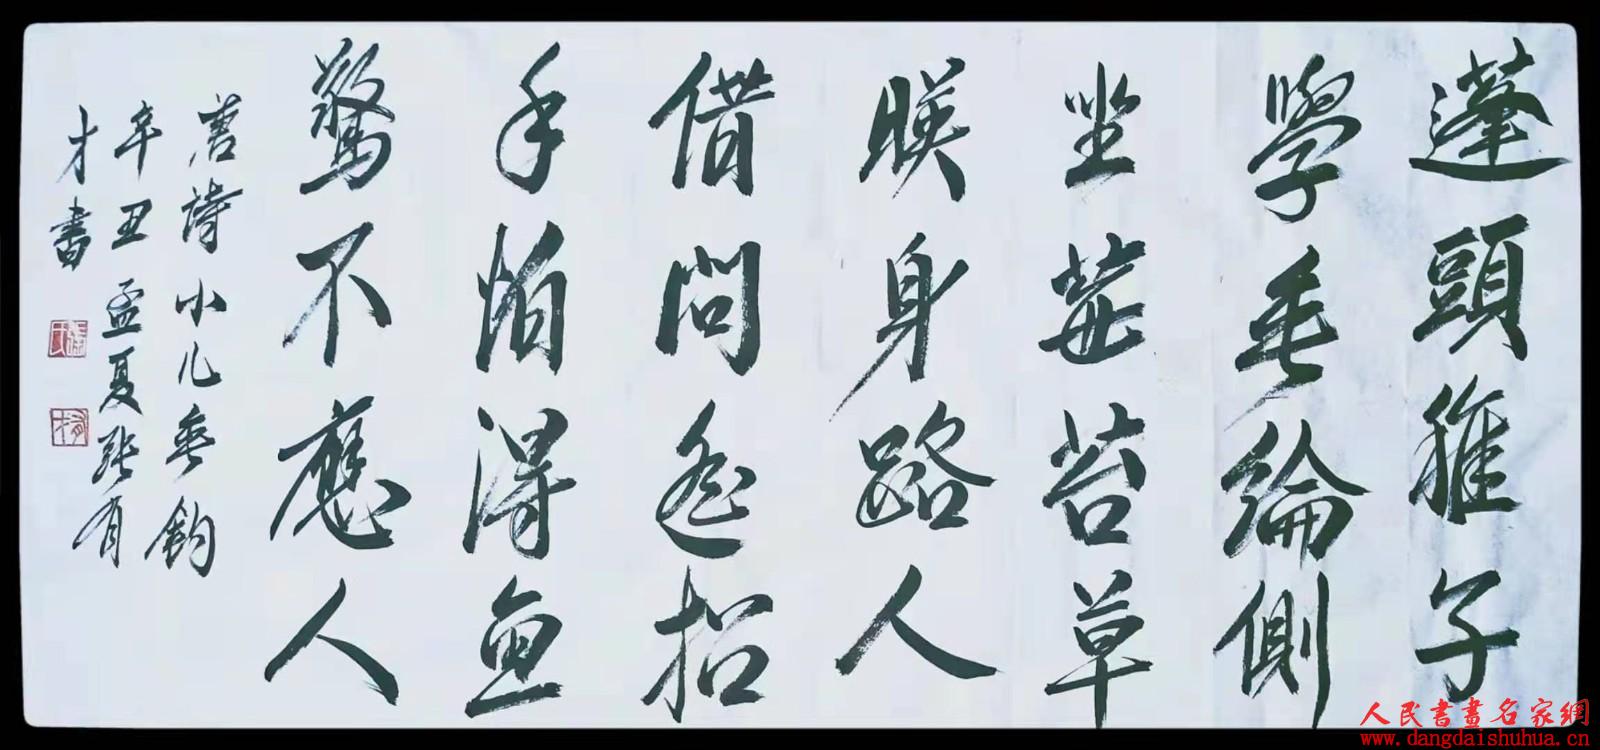 蓬頭稚子
學垂綸側
坐莓苔草
暎身路人
借問遙招
手怕得魚
驚不應人
唐詩小儿垂釣
辛丑孟夏張有
才書
張氏
有才
人民書畫名家網
www.dangdaishuhua.cn